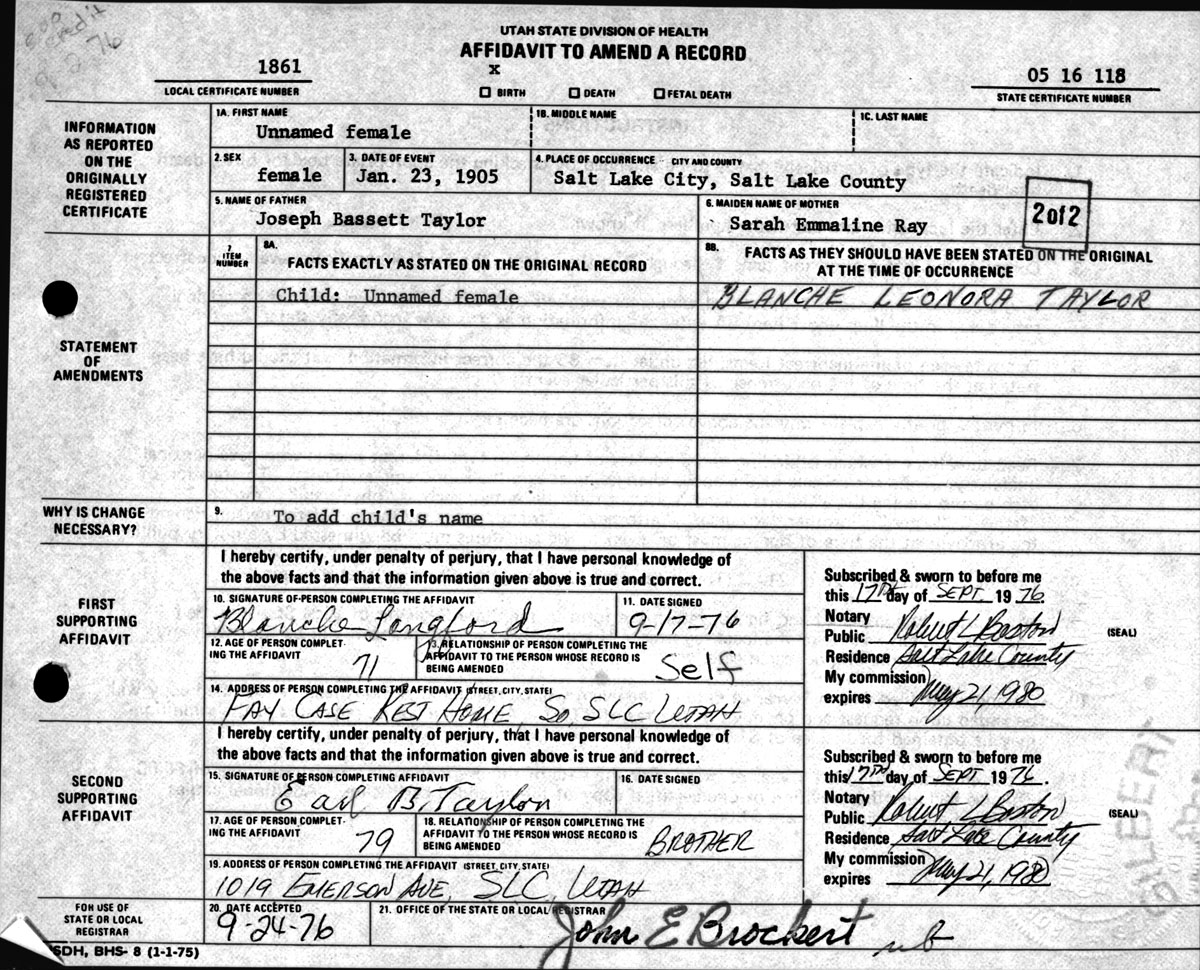 UTAH STATE DIVISION OF HEALTH
AFFIDAVIT TO AMEND A RECORD
1861
LOCAL CERTIFICATE NUMBER
X
BIRTH DEATH FETAL DEATH
05 16 118
STATE CERTIFICATE NUMBER
INFORMATION
AS REPORTED
ON THE
ORIGINALLY
REGISTERED
CERTIFICATE
1A. FIRST NAME 1B. MIDDLE NAME 1C. LAST NAME
Unnamed female
2. SEX 3. DATE OF EVENT 4. PLACE OF OCCURRENCE - CITY AND COUNTY
female Jan. 23, 1905 Salt Lake City, Salt Lake County
5. NAME OF FATHER 6. MAIDEN NAME OF MOTHER
Joseph Bassett Taylor Sarah Emmaline Ray
2 of 2
STATEMENT
OF
AMENDMENTS
7
ITEM
NUMBER
8A.
FACTS EXACTLY AS STATED ON THE ORIGINAL RECORD
8B.
FACTS AS THEY SHOULD HAVE BEEN STATED ON THE ORIGINAL
AT THE TIME OF OCCURRENCE
Child: Unnamed female BLANCHE LEONORA TAYLOR
WHY IS CHANGE
NECESSARY?
9.
To add child's name
FIRST
SUPPORTING
AFFIDAVIT
I hereby certify, under penalty of perjury, that I have personal knowledge of
the above facts and that the information given above is true and correct.
10. SIGNATURE OF PERSON COMPLETING THE AFFIDAVIT 11. DATE SIGNED
Blanche Longford 9-17-76
12. AGE OF PERSON COMPLET-
ING THE AFFIDAVIT
71
13. RELATIONSHIP OF PERSON COMPLETING THE
AFFIDAVIT TO THE PERSON WHOSE RECORD IS
BEING AMENDED
Self
14. ADDRESS OF PERSON COMPLETING THE AFFIDAVIT (STREET, CITY, STATE)
FAY CASE REST HOME, SO, SLC UTAH
Subscribed & sworn to before me
this 17TH day of SEPT. 19 76.
Notary
Public Robert L Boston (SEAL)
Residence Salt Lake County
My commission
expires May 21, 1980
SECOND
SUPPORTING
AFFIDAVIT
I hereby certify, under penalty of perjury, that I have personal knowledge of
the above facts and that the information given above is true and correct.
15. SIGNATURE OF PERSON COMPLETING AFFIDAVIT 16. DATE SIGNED
Earl B. Taylor
17. AGE OF PERSON COMPLET-
ING THE AFFIDAVIT
79
18. RELATIONSHIP OF PERSON COMPLETING THE
AFFIDAVIT TO THE PERSON WHOSE RECORD IS
BEING AMENDED
BROTHER
19. ADDRESS OF PERSON COMPLETING THE AFFIDAVIT (STREET, CITY, STATE)
1019 EMERSON AVE, SLC, UTAH
Subscribed & sworn to before me
this 17TH day of SEPT 19 76.
Notary
Public Robert L Boston (SEAL)
Residence Salt Lake County
My commission
expires May 21, 1980
FOR USE OF
STATE OR LOCAL
REGISTRAR
20. DATE ACCEPTED 21. OFFICE OF THE STATE OR LOCAL REGISTRAR
9-24-76 John E Brockert
SDH, BHS- 8 (1-1-75)